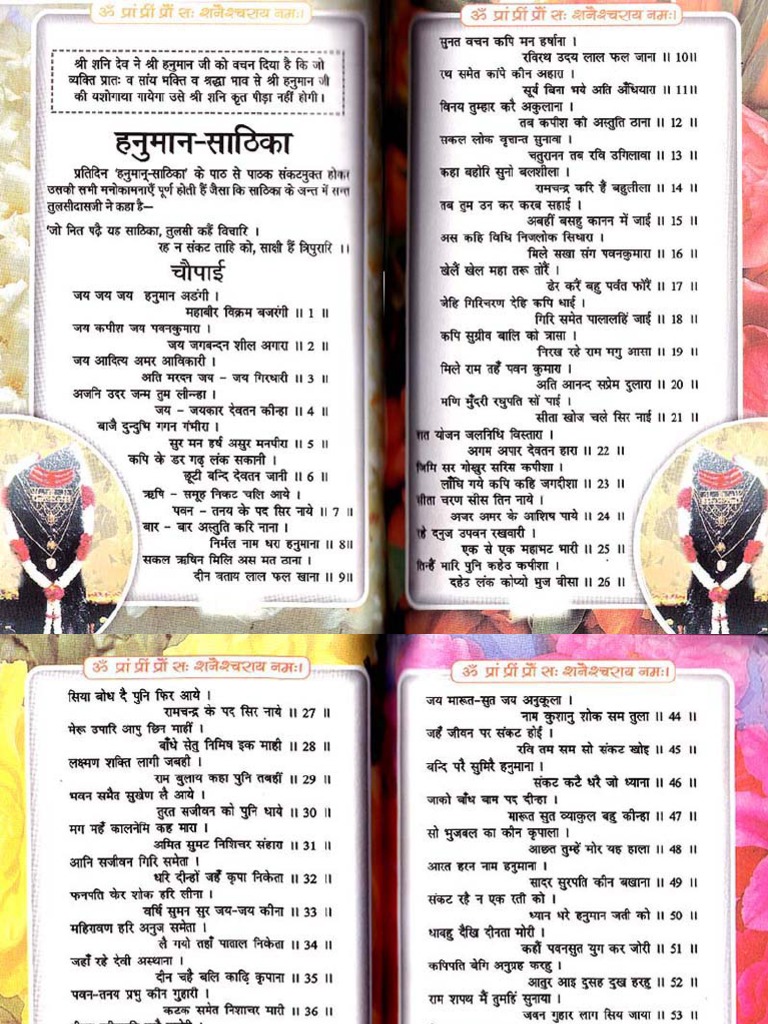 ॐ प्रां प्रीं प्रौं सः शनैश्चराय नमः।
श्री शनि देव ने श्री हनुमान जी को वचन दिया है कि जो
व्यक्ति प्रातः व सांय भक्ति व श्रद्धा भाव से श्री हनुमान जी
की यशोगाथा गायेगा उसे श्री शनि कृत पीड़ा नहीं होगी।
हनुमान-साठिका
प्रतिदिन 'हनुमान्-साठिका' के पाठ से पाठक संकटमुक्त होकर
उसकी सभी मनोकामनाएँ पूर्ण होती हैं जैसा कि साठिका के अन्त में सन्त
तुलसीदासजी ने कहा है—
'जो नित पढ़ै यह साठिका, तुलसी कहैं विचारि ।
रह न संकट ताहि को, साक्षी हैं त्रिपुरारि ।।
चौपाई
जय जय जय हनुमान अडंगी ।
महाबीर विक्रम बजरंगी ॥ 1 ॥
जय कपीश जय पवनकुमारा ।
जय जगबन्दन शील अगारा ॥ 2 ॥
जय आदित्य अमर आविकारी ।
अति मरदन जय - जय गिरधारी ॥ 3 ॥
अजनि उदर जन्म तुम लीन्हा ।
जय - जयकार देवतन कीन्हा ॥ 4 ॥
बाजै दुन्दुभि गगन गंभीरा ।
सुर मन हर्ष असुर मनपीरा ॥ 5 ॥
कपि के डर गढ़ लंक सकानी ।
छूटी बन्दि देवतन जानी ॥ 6 ॥
ऋषि - समूह निकट चलि आये ।
पवन - तनय के पद सिर नाये ॥ 7 ॥
बार - बार अस्तुति करि नाना ।
निर्मल नाम धरा हनुमाना ॥ 8॥
सकल ऋषिन मिलि अस मत ठाना ।
दीन बताय लाल फल खाना ॥ 9॥
ॐ प्रां प्रीं प्रौं सः शनैश्चराय नमः।
सुनत वचन कपि मन हर्षाना ।
रविरथ उदय लाल फल जाना ॥ 10॥
रथ समेत कांपे कीन अहारा ।
सूर्य बिना भये अति अँधियारा ॥ 11॥
विनय तुम्हार करै अकुलाना ।
तब कपीश को अस्तुति ठाना ॥ 12 ॥
सकल लोक वृत्तान्त सुनावा ।
चतुरानन तब रवि उगिलावा ॥ 13 ॥
कहा बहोरि सुनो बलशीला ।
रामचन्द्र करि हैं बहुलीला ॥ 14 ॥
तब तुम उन कर करब सहाई ।
अबहीं बसहु कानन में जाई ॥ 15 ॥
अस कहि विधि निजलोक सिधारा ।
मिले सखा संग पवनकुमारा ॥ 16 ॥
खेलैं खेल महा तरू तोरैं ।
ढेर करैं बहु पर्वत फोरैं ॥ 17 ॥
जेहि गिरिचरण देहि कपि धाई ।
गिरि समेत पालालहिं जाई ॥ 18 ॥
कपि सुग्रीव बालि को त्रासा ।
निरख रहे राम मगु आसा ॥ 19 ॥
मिले राम तहँ पवन कुमारा ।
अति आनन्द सप्रेम दुलारा ॥ 20 ॥
मणि मुँदरी रघुपति सों पाई ।
सीता खोज चले सिर नाई ॥ 21 ॥
शत योजन जलनिधि विस्तारा ।
अगम अपार देवतन हारा ॥ 22 ॥
जिमि सर गोखुर सरिस कपीशा ।
लाँधि गये कपि कहि जगदीशा ॥ 23 ॥
सीता चरण सीस तिन नाये ।
अजर अमर के आशिष पाये ॥ 24 ॥
रहे दनुज उपवन रखवारी ।
एक से एक महाभट भारी ॥ 25 ॥
तिन्हैं मारि पुनि कहेउ कपीशा ।
दहेउ लंक कोप्यो भुज बीसा ॥ 26 ॥
ॐ प्रां प्रीं प्रौं सः शनैश्चराय नमः।
सिया बोध दै पुनि फिर आये ।
रामचन्द्र के पद सिर नाये ॥ 27 ॥
मेरू उपारि आपु छिन माहीं ।
बाँधे सेतु निमिष इक माही ॥ 28 ॥
लक्ष्मण शक्ति लागी जबही ।
राम बुलाय कहा पुनि तबहीं ॥ 29 ॥
भवन समैत सुखेण लै आये ।
तुरत सजीवन को पुनि धाये ॥ 30 ॥
मग महँ कालनेमि कह मारा ।
अमित सुमट निशिचर संहारा ॥ 31 ॥
आनि सजीवन गिरि समेता ।
धरि दीन्हों जहँ कृपा निकेता ॥ 32 ॥
फनपति केर शोक हरि लीना ।
वर्षि सुमन सुर जय-जय कीना ॥ 33 ॥
महिरावण हरि अनुज समेता ।
लै गयो तहाँ पाताल निकेता ॥ 34 ॥
जहाँ रहे देवी अस्थाना ।
दीन चहै बलि काढ़ि कृपाना ॥ 35 ॥
पवन-तनय प्रभु कीन गुहारी ।
कटक समेत निशाचर मारी ॥ 36 ॥
ॐ प्रां प्रीं प्रौं सः शनैश्चराय नमः।
जय मारूत-सुत जय अनुकूला ।
नाम कृशानु शोक सम तुला ॥ 44 ॥
जहँ जीवन पर संकट होई ।
रवि तम सम सो संकट खोइ ॥ 45 ॥
बन्दि परै सुमिरै हनुमाना ।
संकट कटै धरै जो ध्याना ॥ 46 ॥
जाको बाँध बाम पद दीन्हा ।
मारूत सुत व्याकुल बहु कीन्हा ॥ 47 ॥
सो भुजबल का कौन कृपाला ।
आछत तुम्हें मोर यह हाला ॥ 48 ॥
आरत हरन नाम हनुमाना ।
सादर सुरपति कीन बखाना ॥ 49 ॥
संकट रहै न एक रती को ।
ध्यान धरे हनुमान जती को ॥ 50 ॥
धावहु दैखि दीनता मोरी ।
कहौं पवनसुत युग कर जोरी ॥ 51 ॥
कपिपति बेगि अनुग्रह करहु ।
आतुर आइ दुसह दुख हरहु ॥ 52 ॥
राम शपथ मैं तुमहिं सुनाया ।
जवन गुहार लाग सिय जाया ॥ 53 ॥